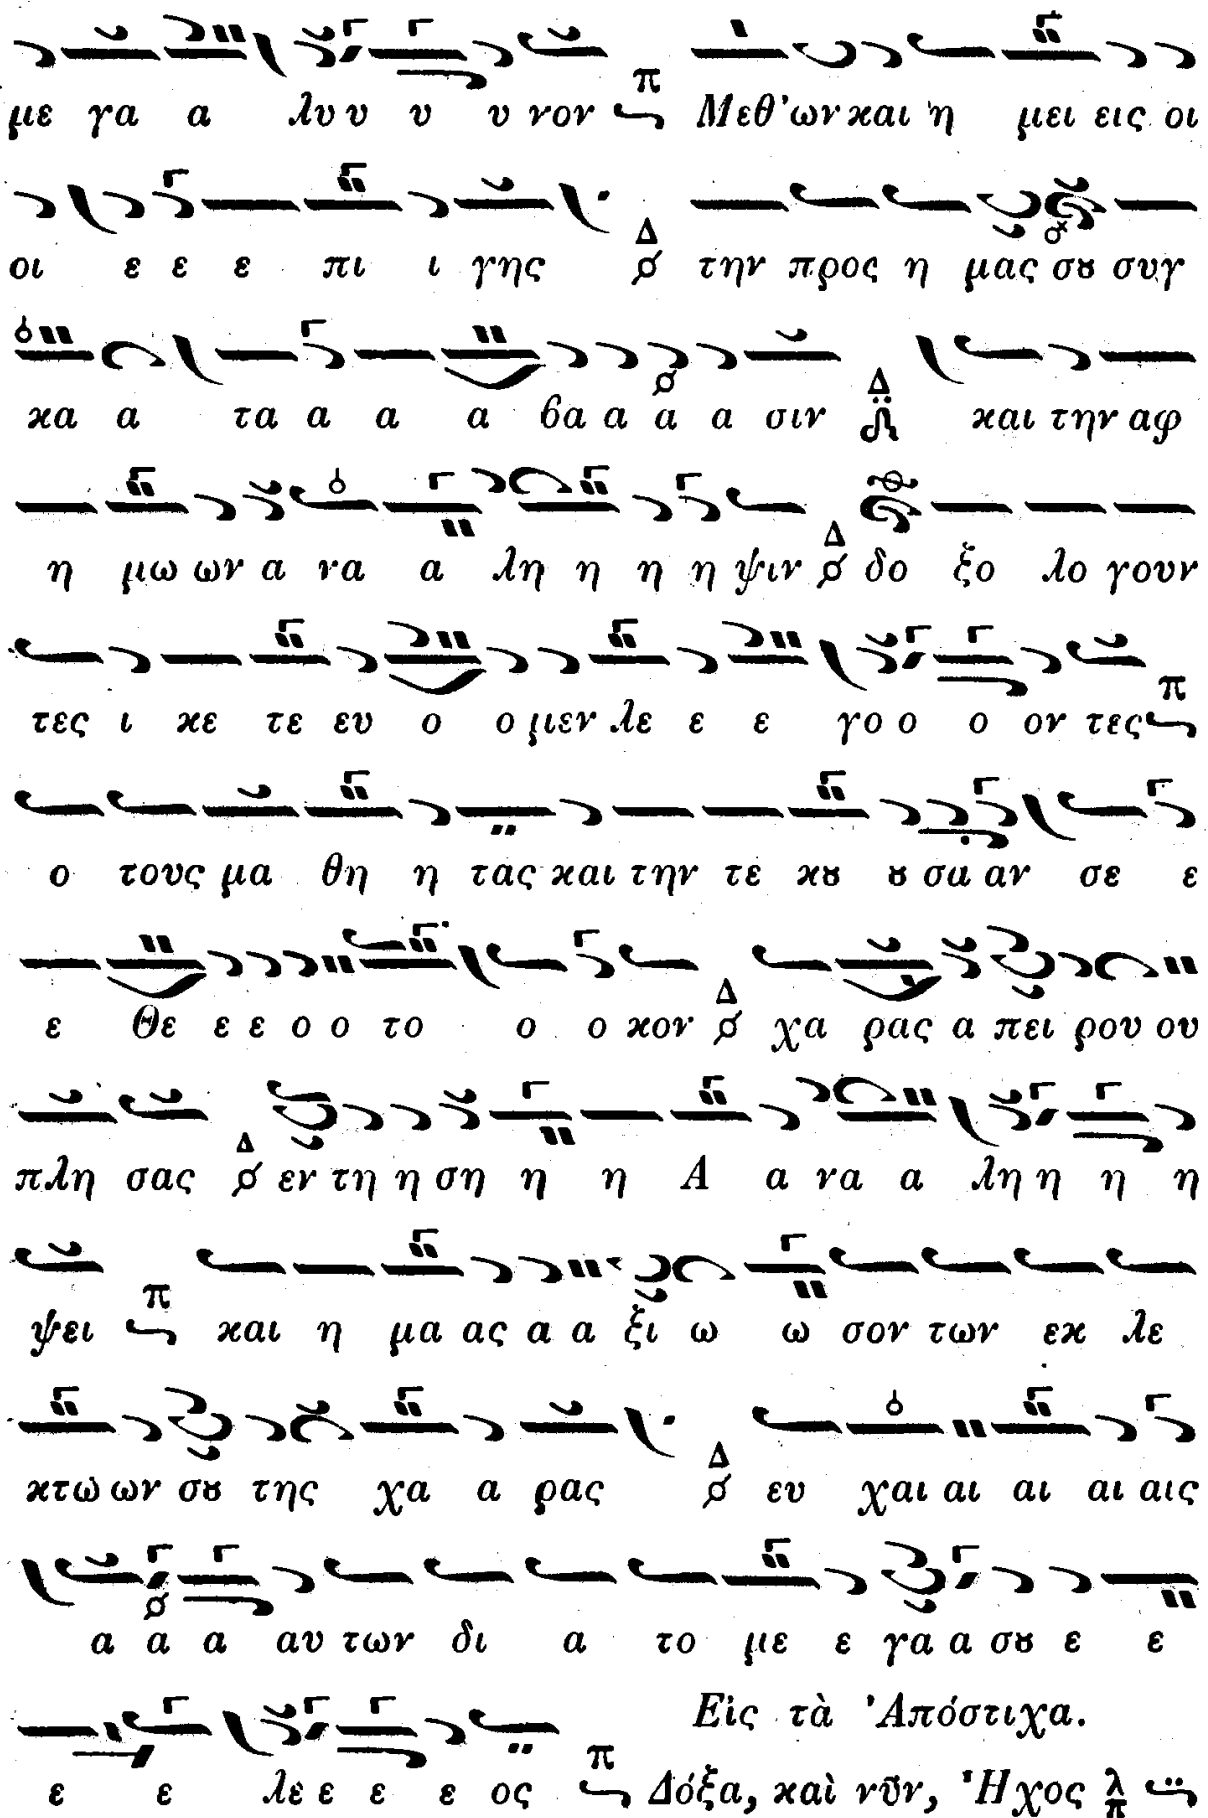 με γα α λυ υ υ υ νον π Μεθ' ων και η μει εις οι
οι ε ε ε πι ι γης Δ την προς η μας σȣ συγ
κα α τα α α α βα α α α σιν Δ και την αφ
η μω ων α να α λη η η η ψιν Δ δο ξο λο γουν
τες ι κε τε ευ ο ο μεν λε ε ε γο ο ο ον τες π
ο τους μα θη η τας και την τε κȣ ȣ σα αν σε ε
ε Θε ε ε ο ο το ο ο κον Δ χα ρας α πει ρου ου
πλη σας Δ εν τη η ση η η Α α να α λη η η η
ψει π και η μα ας α α ξι ω ω σον των εκ λε
κτω ων σȣ της χα α ρας Δ ευ χαι αι αι αι αις
α α α αυ των δι α το με ε γα α σȣ ε ε
ε ε λε ε ε ε ος π
Εἰς τὰ Ἀπόστιχα.
Δόξα, καὶ νῦν, Ἦχος λ π